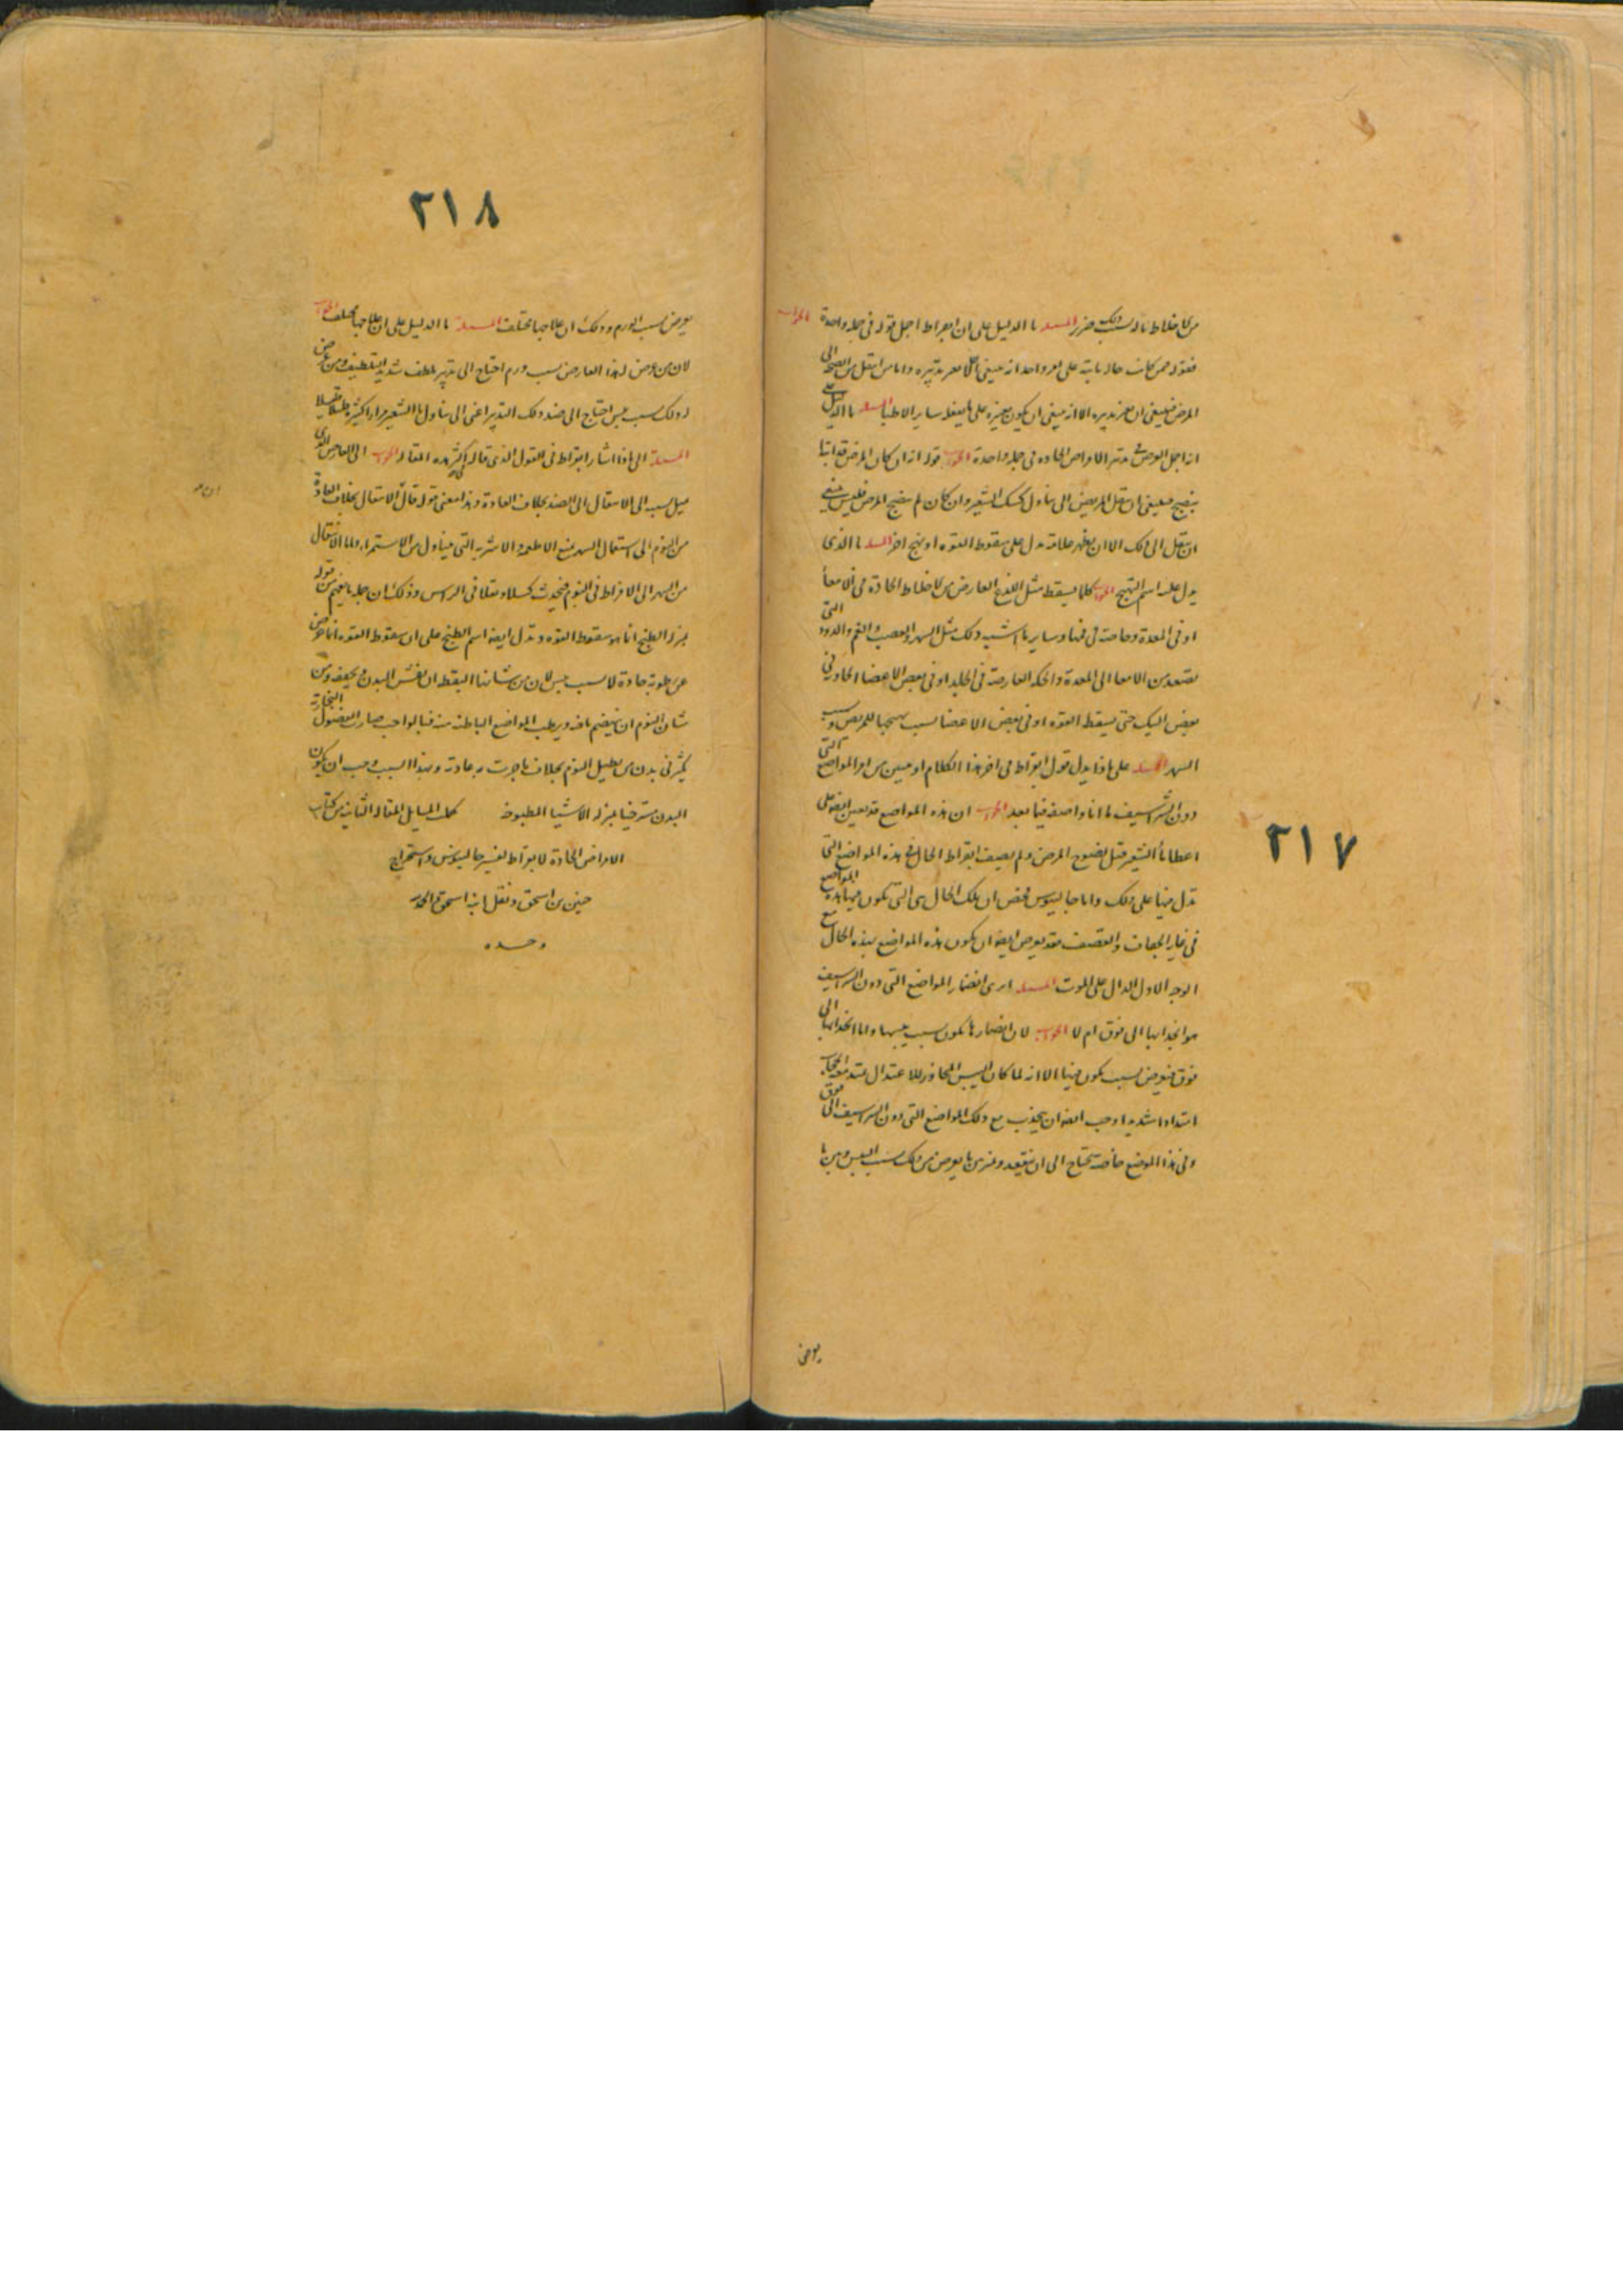 من اخلاط ناله بسبب ذلك ضرر المسئلة ما الدليل على ان ابقراط اجمل قوله فى جملة واحدة الجواب
فقوله فمن كانت حاله ثابتة على امر واحد انه ينبغى الا يغير تدبيره واما من انتقل من الصحة الى
المرض فينبغى ان يغير تدبيره الا انه ينبغى ان يكون تغييره على ما يفعله ساير الاطبا المسئلة ما الدليل على
انه اجمل القول فى تدبير الامراض الحادة فى جملة واحدة الجواب قوله انه ان كان المرض قد ابتدا
ينضج فينبغى ان ينتقل المريض الى تناول كشك الشعير وان كان لم ينضج المرض فليس ينبغى
ان ينتقل الى ذلك الا ان يظهر علامة تدل على سقوط القوة او تهيج اخر المسئلة ما الذى
يدل عليه اسم التهيج الجواب كلما يسقط مثل اللذع العارض من الاخلاط الحادة فى الامعا
او فى المعدة وخاصة فى فمها وساير ما اشبه ذلك مثل السهر والغضب والغم والدود التى
تصعد من الامعا الى المعدة والحكة العارضة فى الجلد او فى بعض الاعضا الحادث فى
بعض البدن حتى يسقط القوة او فى بعض الاعضا بسبب تهيجها للمريض وبسبب
السهر المسئلة على ماذا يدل قول ابقراط فى اخر هذا الكلام او تبين من امر المواضع التى
دون الشراسيف ما انا واصفه فيما بعد الجواب ان هذه المواضع قد تعين ايضا على
اعطا ماء الشعير قبل نضوج المرض ولم يصف ابقراط الحال فى هذه المواضع التى
تدل منها على ذلك واما جالينوس فخص ان تلك الحال هى التى تكون فيها هذه المواضع
فى غاية الجفاف والقصف فقد يعرض ايضا ان تكون هذه المواضع بهذه الحال مع
الوجه الاول الدال على الموت المسئلة ارى انضمار المواضع التى دون الشراسيف
هو انجذابها الى فوق ام لا الجواب لان انضمارها يكون بسبب يبسها واما انجذابها الى
فوق فيعرض بسبب يكون فيها الا انه لما كان اليبس المجاوز للاعتدال يمتد معه الحجاب
امتدادا شديدا وجب ايضا ان يجذب مع ذلك المواضع التى دون الشراسيف الى فوق
وفى هذا الموضع خاصة تحتاج الى ان تتفقد وتميز بين ما يعرض من ذلك بسبب اليبس وبين ما
٢١٧
يعرض
٢١٨
يعرض بسبب الورم وذلك ان علاجهما مختلف المسئلة ما الدليل على ان علاجهما مختلف الجواب
لان من عرض له هذا العارض بسبب ورم احتاج الى تدبير ملطف شديد التلطيف ومن عرض
له ذلك بسبب يبس احتاج الى ضد ذلك التدبير اعنى الى تناول ماء الشعير مرارا كثيرة قليلا قليلا
المسئلة الى ماذا اشار ابقراط فى القول الذى قاله فى اكثر هذه المقالة الجواب الى العارض الذى
ميل بسببه الى الانتقال الى الضد بخلاف العادة وهذا معنى قوله قال الانتقال بخلاف العادة
من النوم الى استعمال السهر يمنع الاطعمة والاشربة التى يتناول من الاستمراء واما الانتقال
من السهر الى الافراط فى النوم فيحدث كسلا وثقلا فى الراس وذلك ان جملة ما يفهم من قوله
بمنزلة الطبخ انما هو سقوط القوة وتدل ايضا اسم الطبخ على ان سقوط القوة انما عرض
عن رطوبة حادة لا بسبب يبس لان من شان اليقظة ان تفش البدن وتجففه ومن
شان النوم ان يهضم ما فيه ويرطب المواضع الباطنة منه فبالواجب صارت الفضول البخارية
يكثر فى بدن من يطيل النوم بخلاف ما جرت به عادته وبهذا السبب وجب ان يكون
البدن مسترخيا بمنزلة الاشيا المطبوخة كملت المسايل المقالة الثانية من كتاب
الامراض الحادة لابقراط تفسير جالينوس واستخراج
حنين بن اسحق ونقل ابنه اسحق والحمد لله
وحده